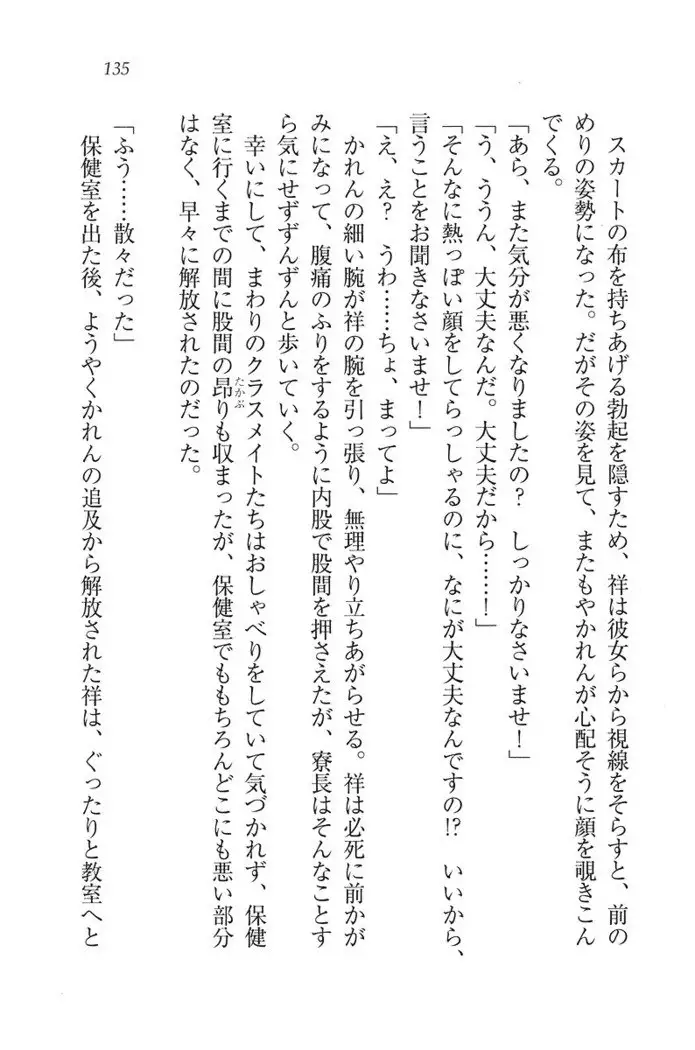 135
スカートの布を持ちあげる勃起を隠すため、祥は彼女らから視線をそらすと、前の
めりの姿勢になった。だがその姿を見て、またもやかれんが心配そうに顔を覗きこん
でくる。
「あら、また気分が悪くなりましたの？　しっかりなさいませ！」
「う、ううん、大丈夫なんだ。大丈夫だから……！」
「そんなに熱っぽい顔をしてらっしゃるのに、なにが大丈夫なんですの!?　いいから、
言うことをお聞きなさいませ！」
「え、え？　うわ……ちょ、まってよ」
かれんの細い腕が祥の腕を引っ張り、無理やり立ちあがらせる。祥は必死に前かが
みになって、腹痛のふりをするように内股で股間を押さえたが、寮長はそんなことす
ら気にせずずんずんと歩いていく。
幸いにして、まわりのクラスメイトたちはおしゃべりをしていて気づかれず、保健
室に行くまでの間に股間の昂りも収まったが、保健室でももちろんどこにも悪い部分
たかぶ
はなく、早々に解放されたのだった。
「ふう……散々だった」
保健室を出た後、ようやくかれんの追及から解放された祥は、ぐったりと教室へと